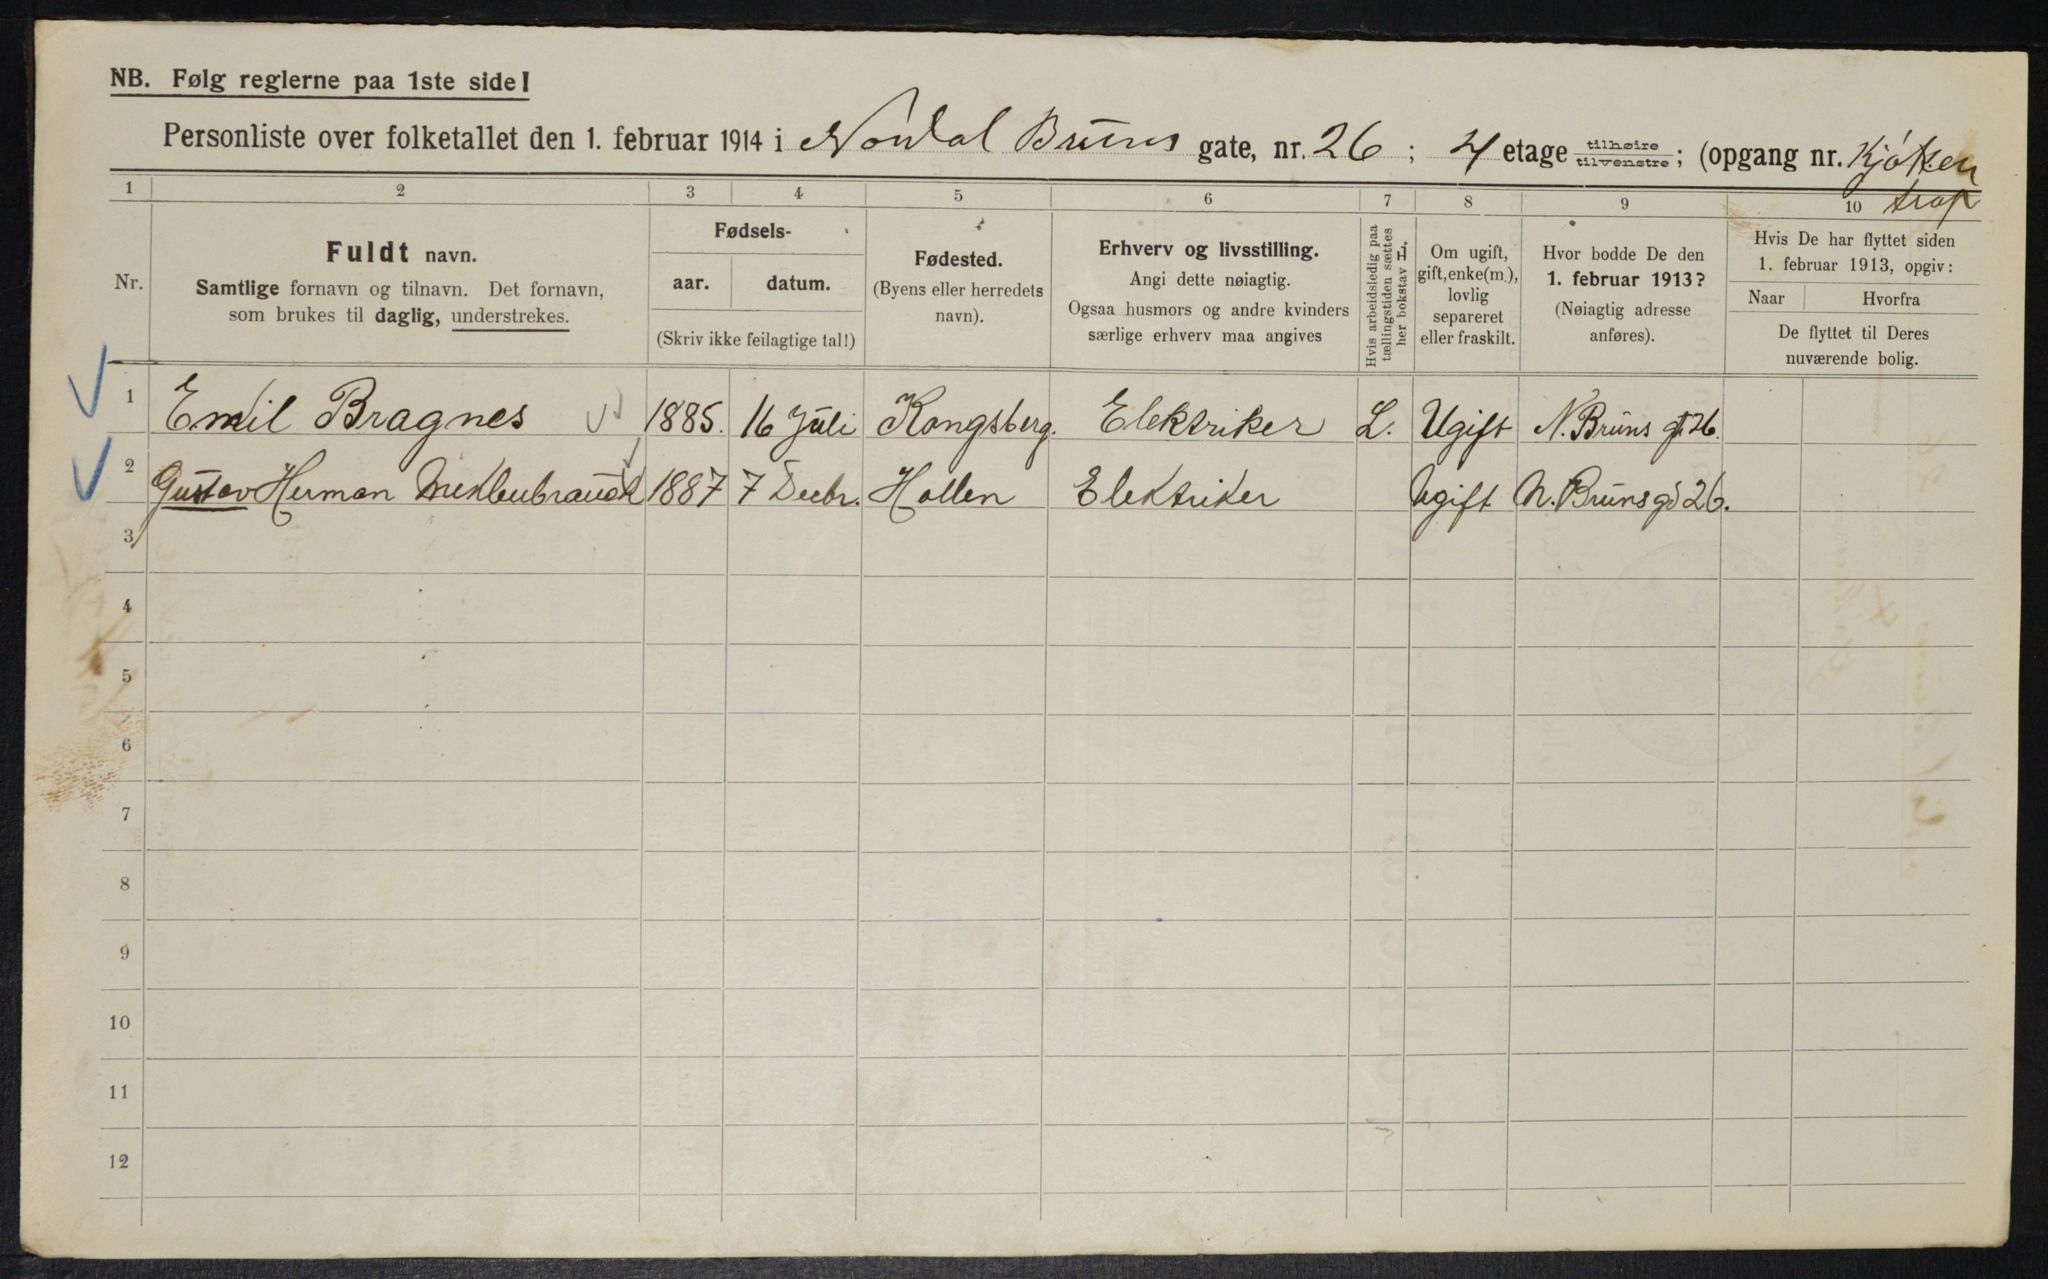 NB. Følg reglerne paa 1ste side!
Personliste over folketallet den 1. februar 1914 i Nordal Bruns gate, nr. 26 ; 4 etage tilhøire tilvenstre ; (opgang nr. Kjøkken
trap
1 2 3 4 5 6 7 8 9 10
Nr.
Fuldt navn.
Samtlige fornavn og tilnavn. Det fornavn,
som brukes til daglig, understrekes.
Fødsels-
aar. datum.
(Skriv ikke feilagtige tal!)
Fødested.
(Byens eller herredets
navn).
Erhverv og livsstilling.
Angi dette nøiagtig.
Ogsaa husmors og andre kvinders
særlige erhverv maa angives
Hvis arbeidsledig paa
tællingstiden sættes
her bokstav L.
Om ugift,
gift, enke(m.),
lovlig
separeret
eller fraskilt.
Hvor bodde De den
1. februar 1913?
(Nøiagtig adresse
anføres).
Hvis De har flyttet siden
1. februar 1913, opgiv:
Naar Hvorfra
De flyttet til Deres
nuværende bolig.
1 Emil Bragnes 1885. 16 Juli Kongsberg. Elektriker L. Ugift N. Bruns gt 26.
2 Gustav Herman 1887 7 Decbr. Hollen Elektriker Ugift N. Bruns gd 26.
3
4
5
6
7
8
9
10
11
12